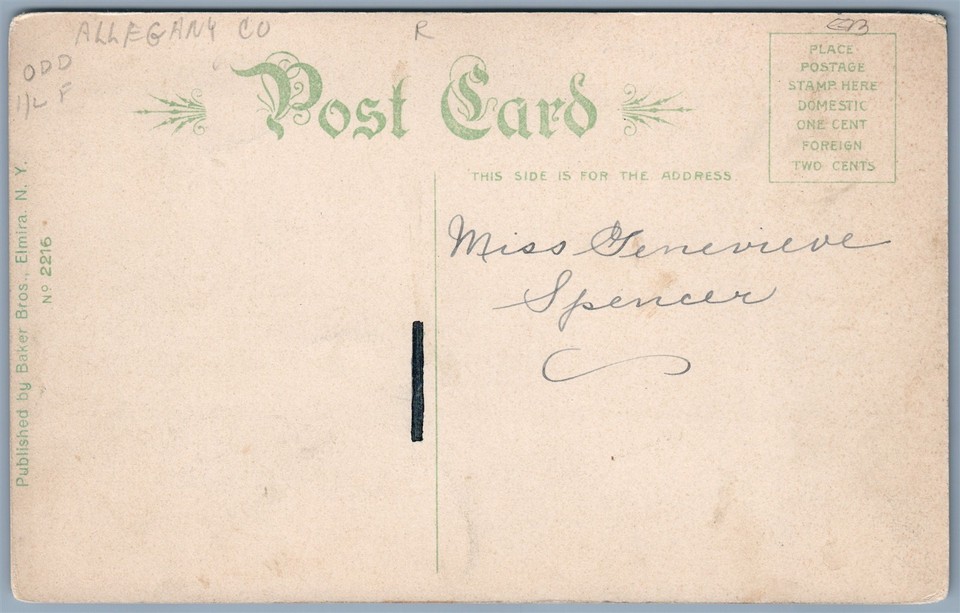 ALLEGANY CO
R
ODD
Post Card
PLACE
POSTAGE
STAMP HERE
DOMESTIC
ONE CENT
FOREIGN
TWO CENTS
THIS SIDE IS FOR THE ADDRESS.
Miss Genevieve
Spencer
Published by Baker Bros., Elmira. N. Y.
No 2216